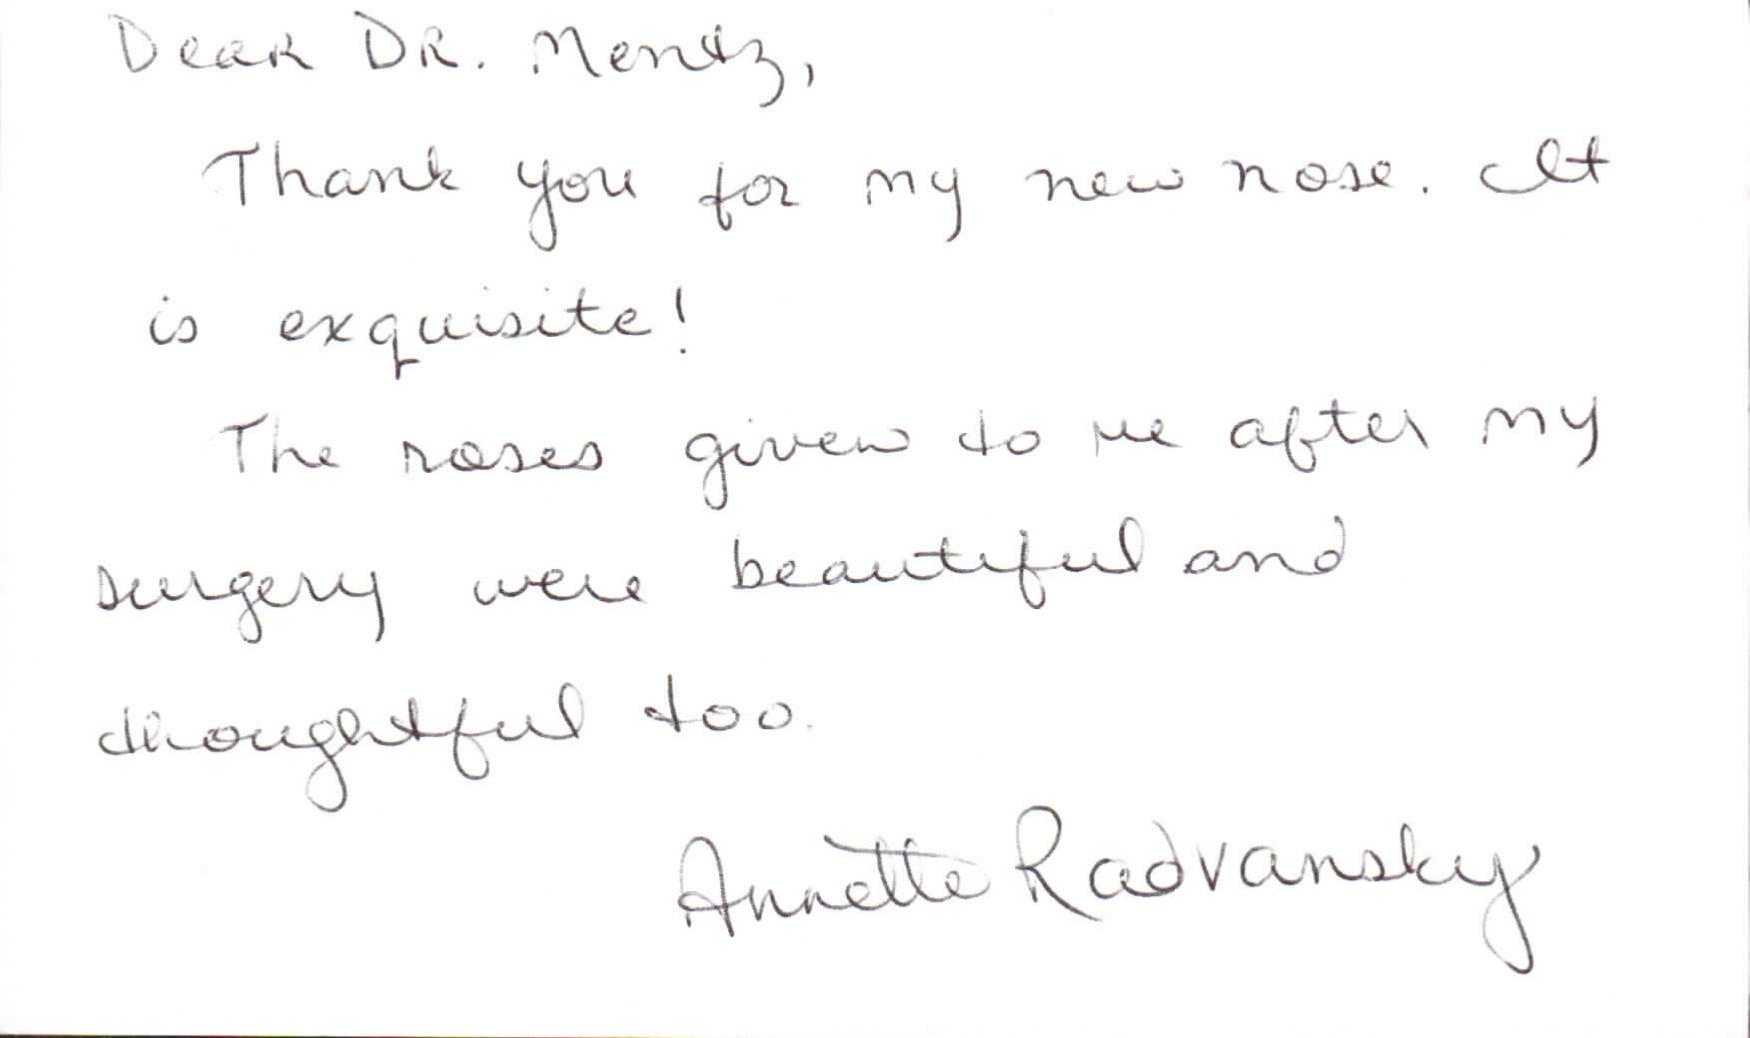 Dear Dr. Mentz,
Thank you for my new nose. It
is exquisite!
The roses given to me after my
surgery were beautiful and
thoughtful too.
Annette Radvansky